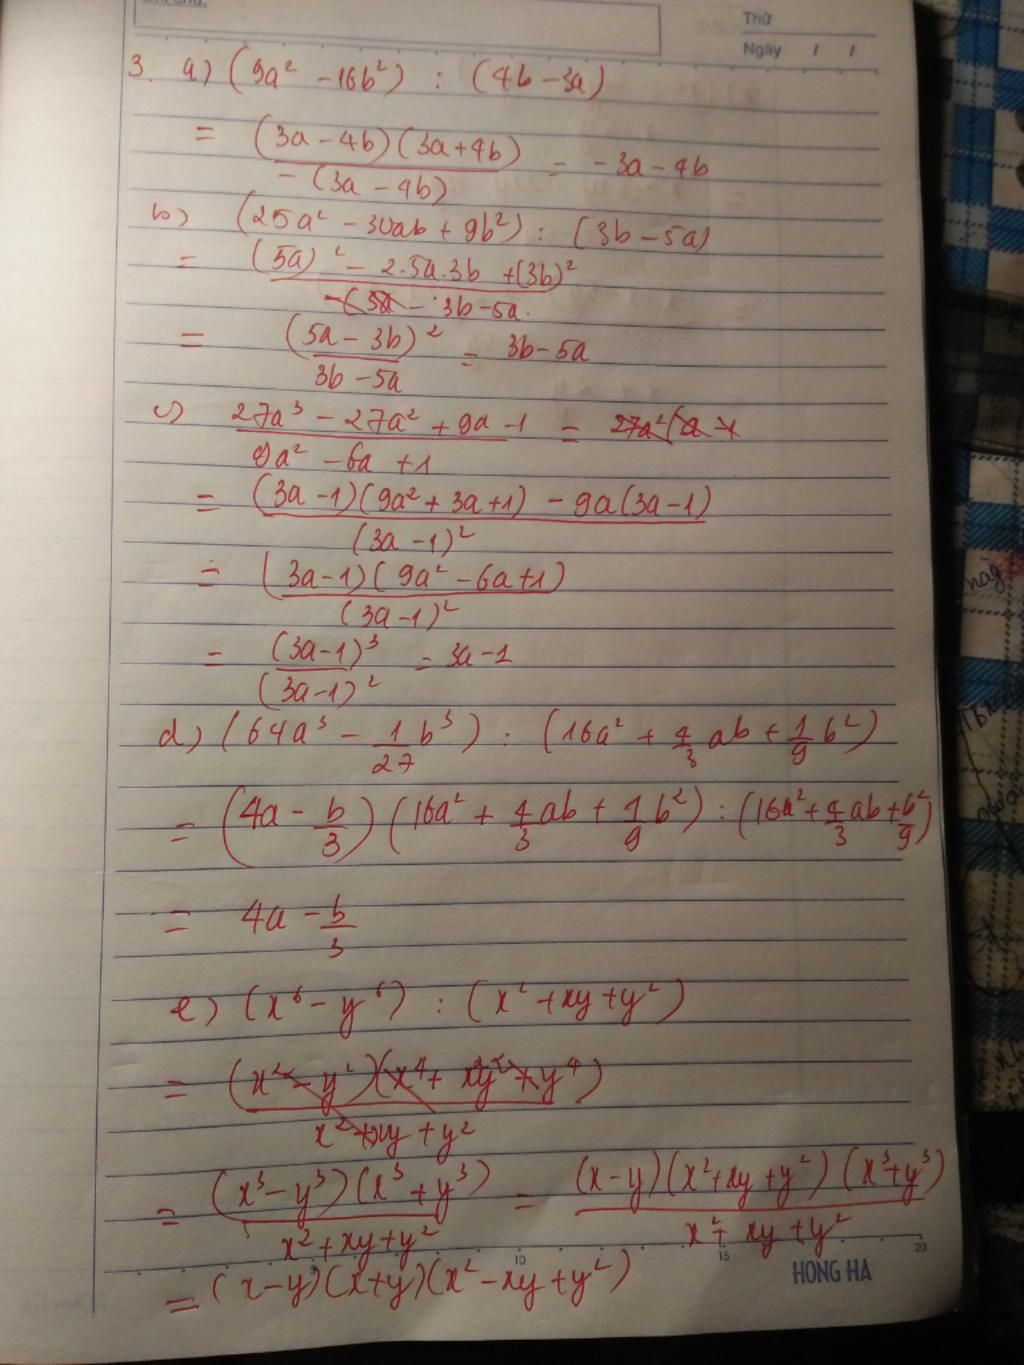 Thứ
Ngày / /
3. a) (9a² - 16b²) : (4b - 3a)
= (3a - 4b)(3a + 4b) / -(3a - 4b) = -3a - 4b
b) (25a² - 30ab + 9b²) : (3b - 5a)
= (5a)² - 2.5a.3b + (3b)² / 3b - 5a
= (5a - 3b)² / 3b - 5a = 3b - 5a
c) 27a³ - 27a² + 9a - 1 / 9a² - 6a + 1 =
= (3a - 1)(9a² + 3a + 1) - 9a(3a - 1) / (3a - 1)²
= (3a - 1)(9a² - 6a + 1) / (3a - 1)²
= (3a - 1)³ / (3a - 1)² = 3a - 1
d) (64a³ - 1/27 b³) : (16a² + 4/3 ab + 1/9 b²)
= (4a - b/3)(16a² + 4/3 ab + 1/9 b²) : (16a² + 4/3 ab + b²/9)
= 4a - b/3
e) (x⁶ - y⁶) : (x² + xy + y²)
= (x² - y²)(x⁴ + xy² + y⁴) / x² + xy + y²
= (x³ - y³)(x³ + y³) / x² + xy + y² = (x - y)(x² + xy + y²)(x³ + y³) / x² + xy + y²
= (x - y)(x + y)(x² - xy + y²)
10 15 20
HONG HA